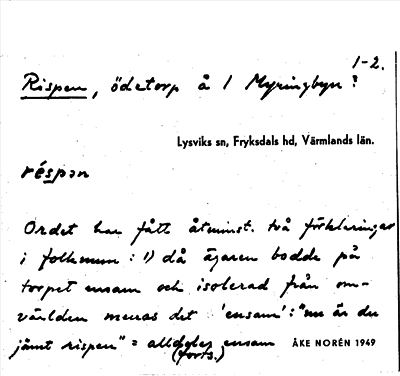 1-2.
Rispen, ödetorp å 1 Myringbyn?
Lysviks sn, Fryksdals hd, Värmlands län.
réspən
Ordet har fått åtminst. två förklaringar
i folkmun: 1) då ägaren bodde på
torpet ensam och isolerad från om-
världen menas det 'ensam': "nu är du
jämt rispen" = alldeles ensam ÅKE NORÉN 1949
(forts.)